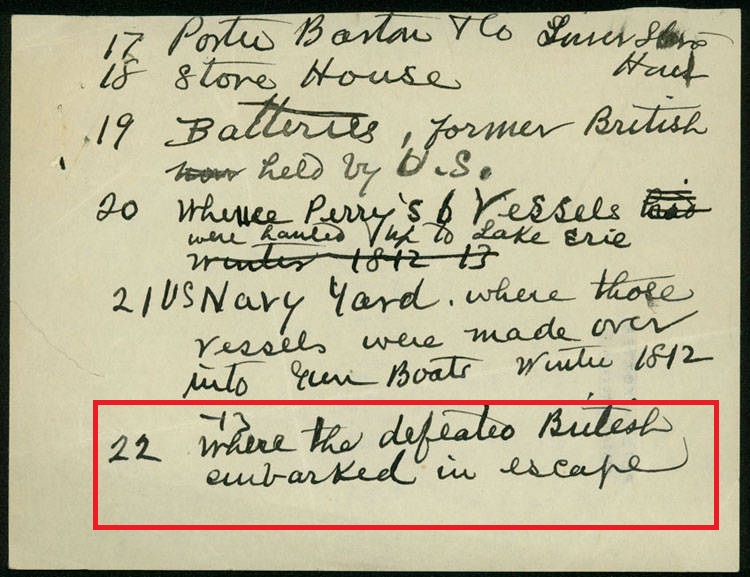 17 Porter Barton & Co
18 Store House
19 Batteries, former British
now held by U.S.
20 Whence Perry's 6 Vessels
were hauled up to Lake Erie
Winter 1812 13
21 US Navy Yard. where those
vessels were made over
into Gun Boats Winter 1812
-13
22 where the defeated British
embarked in escape